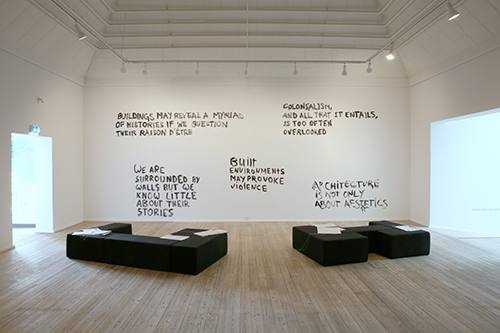 BUILDINGS MAY REVEAL A MYRIAD
OF HISTORIES IF WE QUESTION
THEIR RAISON D'ÊTRE
COLONIALISM,
AND ALL THAT IT ENTAILS,
IS TOO OFTEN
OVERLOOKED
WE ARE
SURROUNDED BY
WALLS BUT WE
KNOW LITTLE
ABOUT THEIR
STORIES
BUILT
ENVIRONMENTS
MAY PROVOKE
VIOLENCE
ARCHITECTURE
IS NOT ONLY
ABOUT AESTETICS